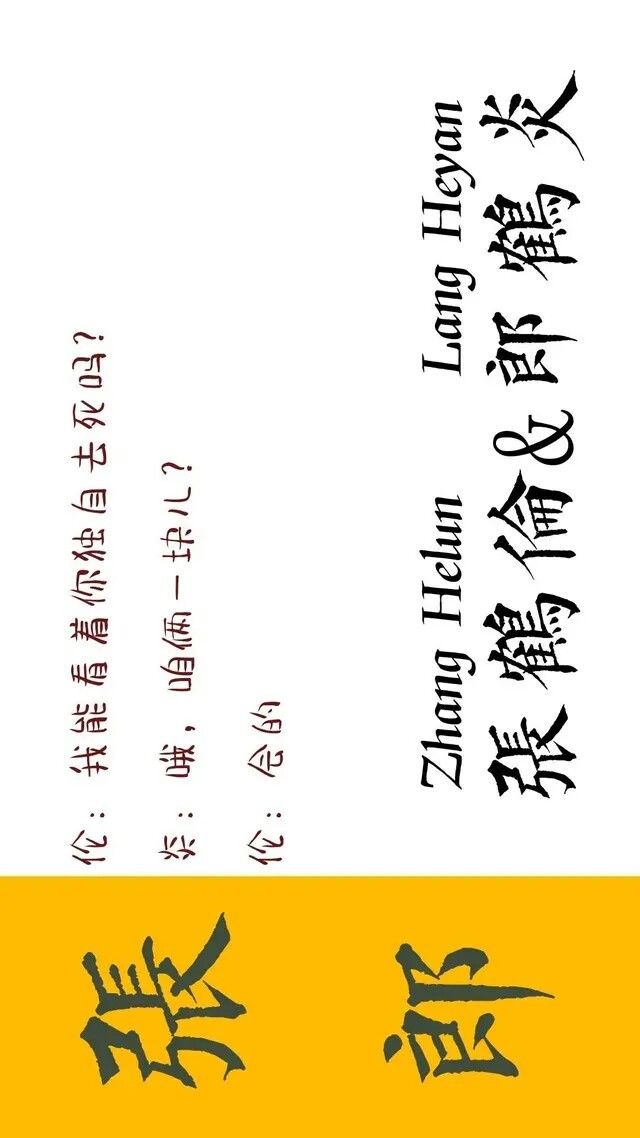 伦：我能看着你独自去死吗？
炎：哦，咱俩一块儿？
伦：会的
Zhang Helun Lang Heyan
張鶴倫&郎鶴炎
張
郎